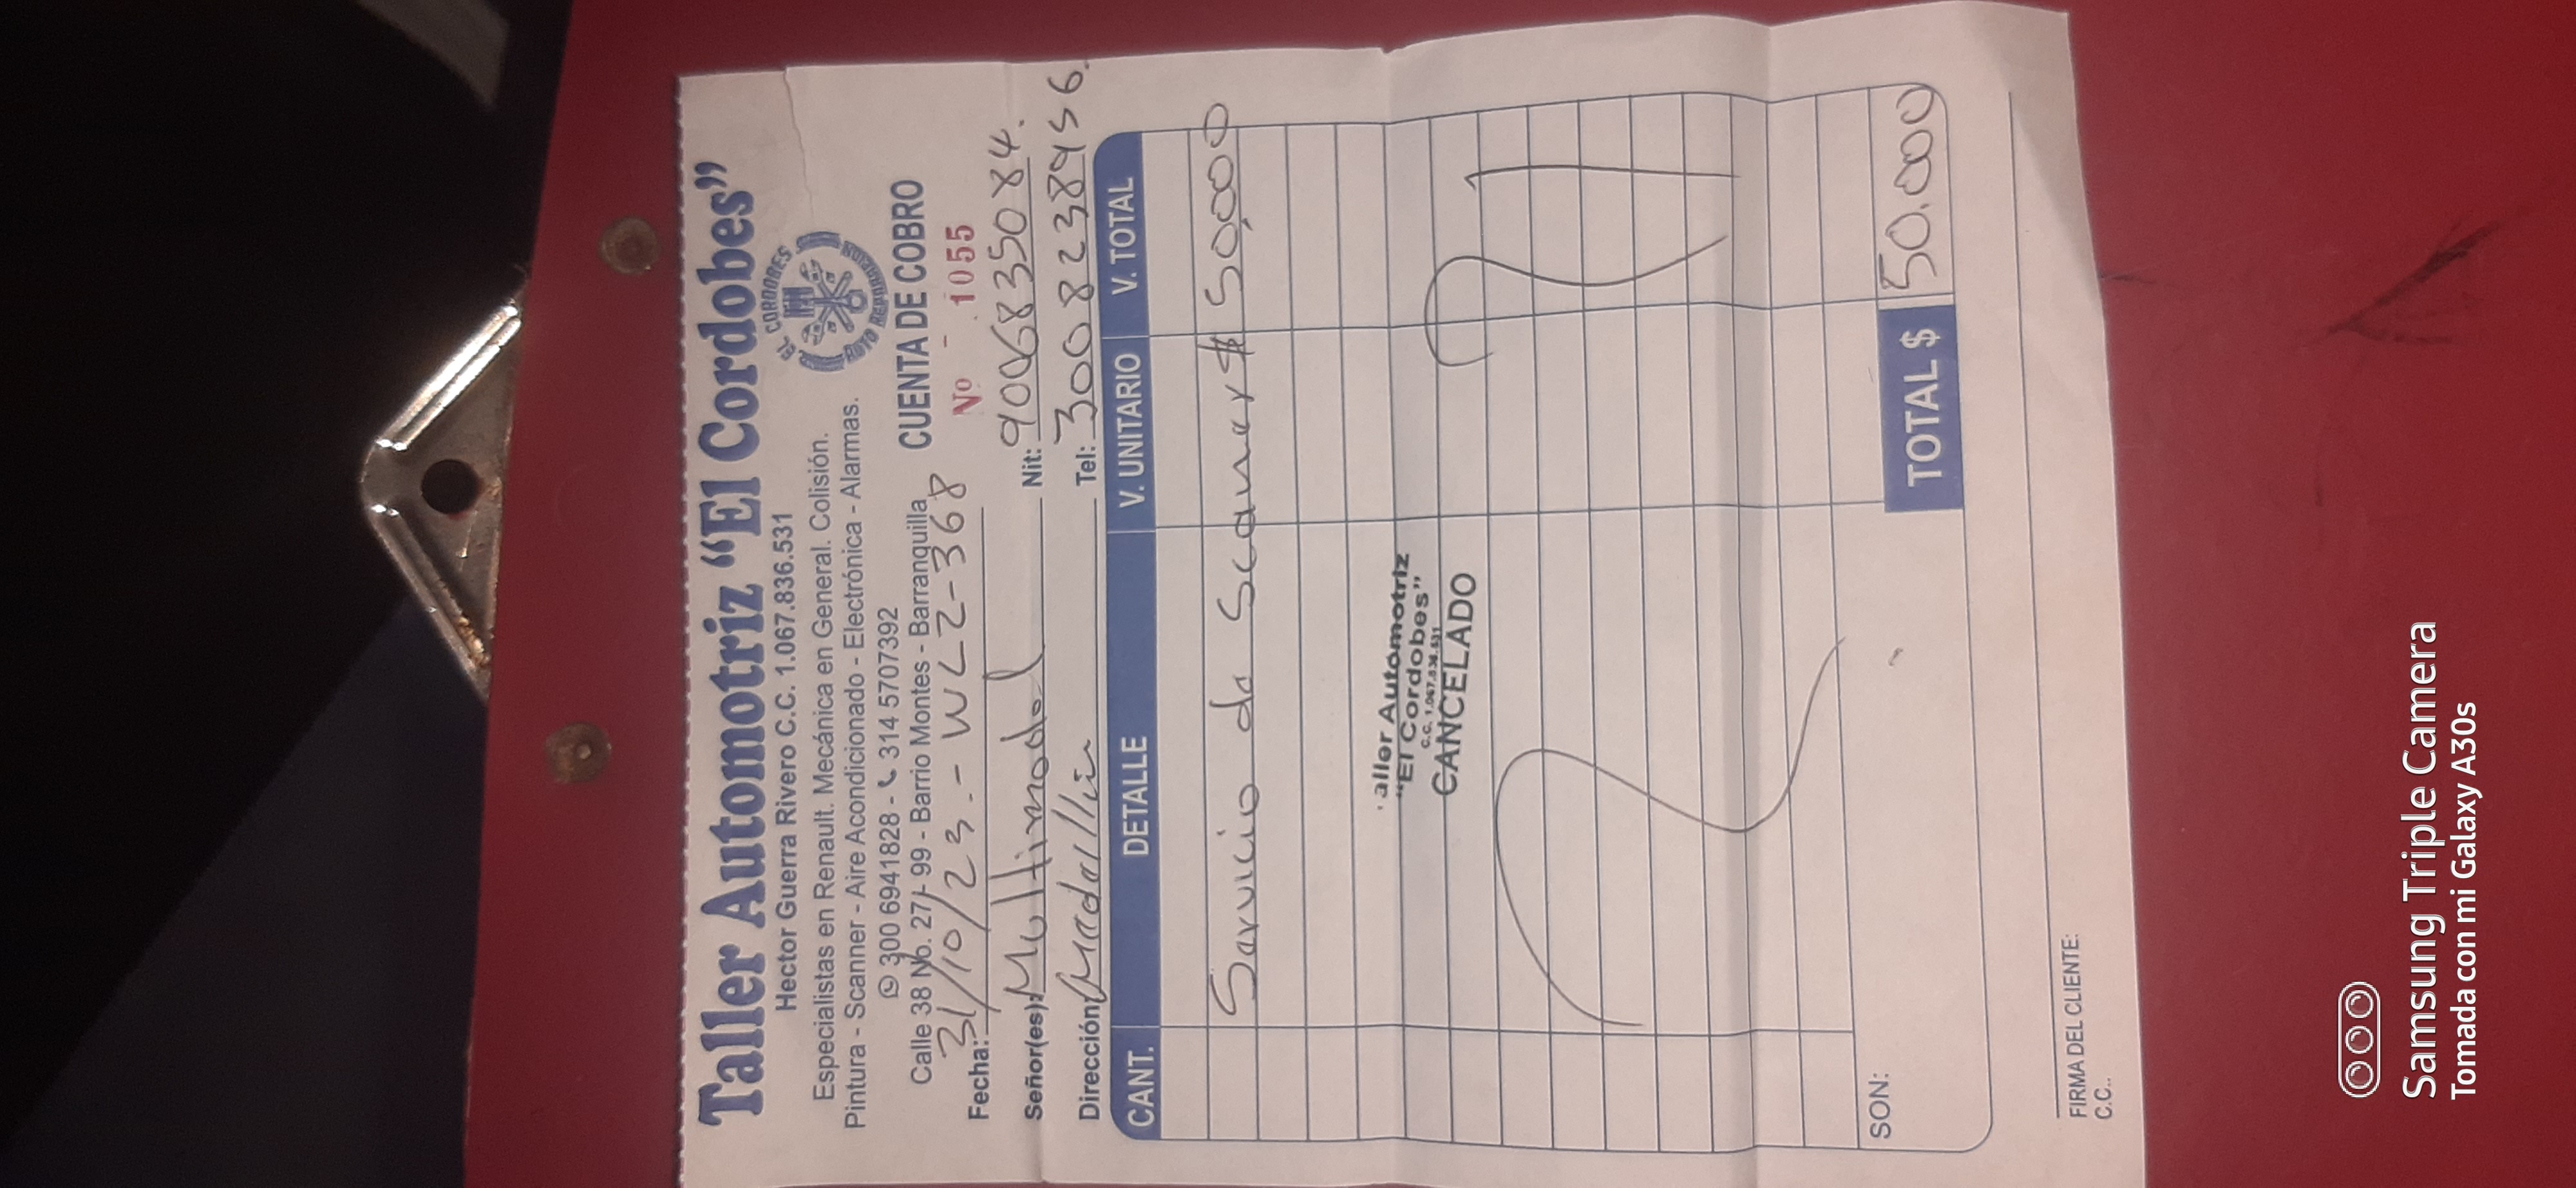 Taller Automotriz "El Cordobes"
Hector Guerra Rivero C.C. 1.067.836.531
Especialistas en Renault. Mecánica en General. Colisión.
Pintura - Scanner - Aire Acondicionado - Electrónica - Alarmas.
300 6941828 - 314 5707392
Calle 38 No. 27J- 99 - Barrio Montes - Barranquilla
EL CORDOBES
AUTO REPARACIONES
CUENTA DE COBRO
Fecha: 31/10/23.- WLZ-368
No - 1055
Señor(es): Multimodal Nit: 900683508 4.
Dirección: Medellin Tel: 3008238456.
CANT. DETALLE V. UNITARIO V. TOTAL
Servicio de Scanner $ 50,000
aller Automotriz
"El Cordobes"
C.C. 1.067.836.531
CANCELADO
SON:
TOTAL $ 50.000
FIRMA DEL CLIENTE:
C.C..
Samsung Triple Camera
Tomada con mi Galaxy A30s